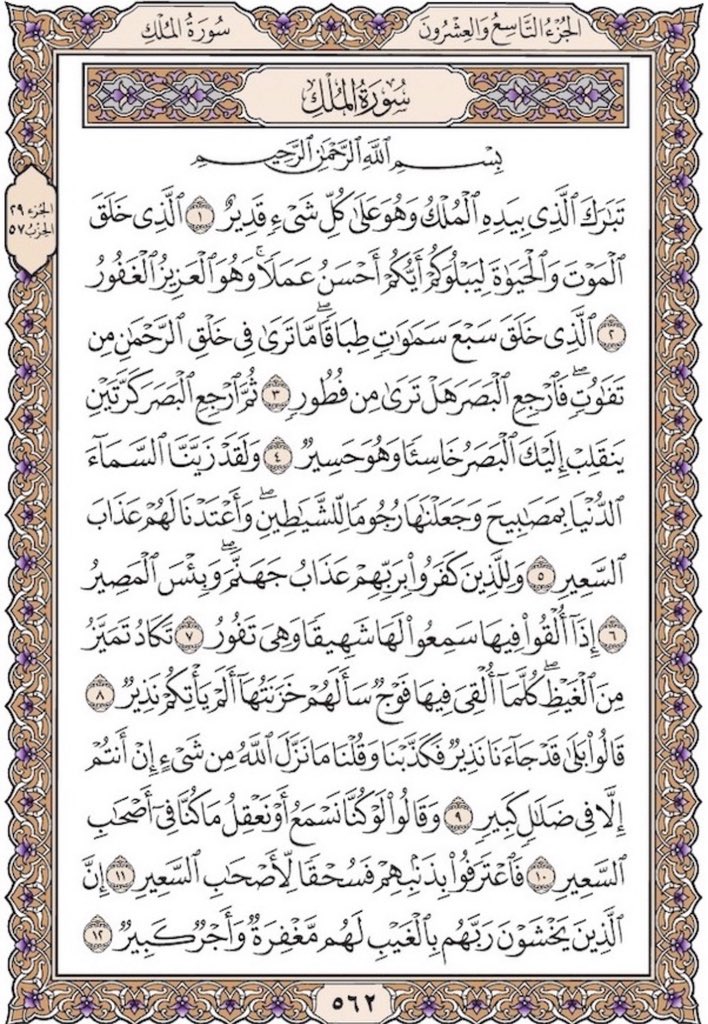 سُورَةُ المُلْكِ
الجُزْءُ التَّاسِعُ وَالعِشْرُونَ
سُورَةُ المُلْكِ
بِسْمِ ٱللَّهِ ٱلرَّحْمَٰنِ ٱلرَّحِيمِ
الجُزْء ٢٩
الحِزْبُ ٥٧
تَبَٰرَكَ ٱلَّذِى بِيَدِهِ ٱلْمُلْكُ وَهُوَ عَلَىٰ كُلِّ شَىْءٍ قَدِيرٌ ١ ٱلَّذِى خَلَقَ
ٱلْمَوْتَ وَٱلْحَيَوٰةَ لِيَبْلُوَكُمْ أَيُّكُمْ أَحْسَنُ عَمَلًا ۚ وَهُوَ ٱلْعَزِيزُ ٱلْغَفُورُ
٢ ٱلَّذِى خَلَقَ سَبْعَ سَمَٰوَٰتٍ طِبَاقًا ۖ مَّا تَرَىٰ فِى خَلْقِ ٱلرَّحْمَٰنِ مِن
تَفَٰوُتٍ ۖ فَٱرْجِعِ ٱلْبَصَرَ هَلْ تَرَىٰ مِن فُطُورٍ ٣ ثُمَّ ٱرْجِعِ ٱلْبَصَرَ كَرَّتَيْنِ
يَنقَلِبْ إِلَيْكَ ٱلْبَصَرُ خَاسِئًا وَهُوَ حَسِيرٌ ٤ وَلَقَدْ زَيَّنَّا ٱلسَّمَآءَ
ٱلدُّنْيَا بِمَصَٰبِيحَ وَجَعَلْنَٰهَا رُجُومًا لِّلشَّيَٰطِينِ ۖ وَأَعْتَدْنَا لَهُمْ عَذَابَ
ٱلسَّعِيرِ ٥ وَلِلَّذِينَ كَفَرُوا۟ بِرَبِّهِمْ عَذَابُ جَهَنَّمَ ۖ وَبِئْسَ ٱلْمَصِيرُ
٦ إِذَآ أُلْقُوا۟ فِيهَا سَمِعُوا۟ لَهَا شَهِيقًا وَهِىَ تَفُورُ ٧ تَكَادُ تَمَيَّزُ
مِنَ ٱلْغَيْظِ ۖ كُلَّمَآ أُلْقِىَ فِيهَا فَوْجٌ سَأَلَهُمْ خَزَنَتُهَآ أَلَمْ يَأْتِكُمْ نَذِيرٌ ٨
قَالُوا۟ بَلَىٰ قَدْ جَآءَنَا نَذِيرٌ فَكَذَّبْنَا وَقُلْنَا مَا نَزَّلَ ٱللَّهُ مِن شَىْءٍ إِنْ أَنتُمْ
إِلَّا فِى ضَلَٰلٍ كَبِيرٍ ٩ وَقَالُوا۟ لَوْ كُنَّا نَسْمَعُ أَوْ نَعْقِلُ مَا كُنَّا فِىٓ أَصْحَٰبِ
ٱلسَّعِيرِ ١٠ فَٱعْتَرَفُوا۟ بِذَنۢبِهِمْ فَسُحْقًا لِّأَصْحَٰبِ ٱلسَّعِيرِ ١١ إِنَّ
ٱلَّذِينَ يَخْشَوْنَ رَبَّهُم بِٱلْغَيْبِ لَهُم مَّغْفِرَةٌ وَأَجْرٌ كَبِيرٌ ١٢
٥٦٢